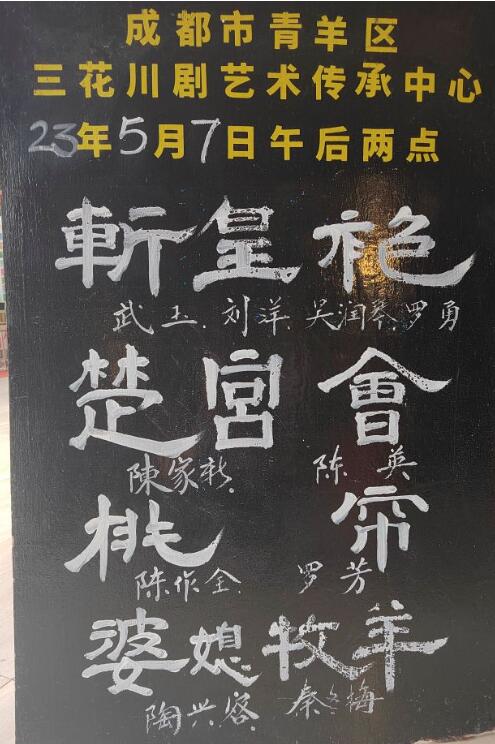 成都市青羊区
三花川剧艺术传承中心
23年5月7日午后两点
斬皇袍
武玉 刘洋 吴润琴 罗勇
楚宫會
陳家新 陈英
桃帘
陈作全 罗芳
婆媳牧羊
陶兴容 秦冬梅